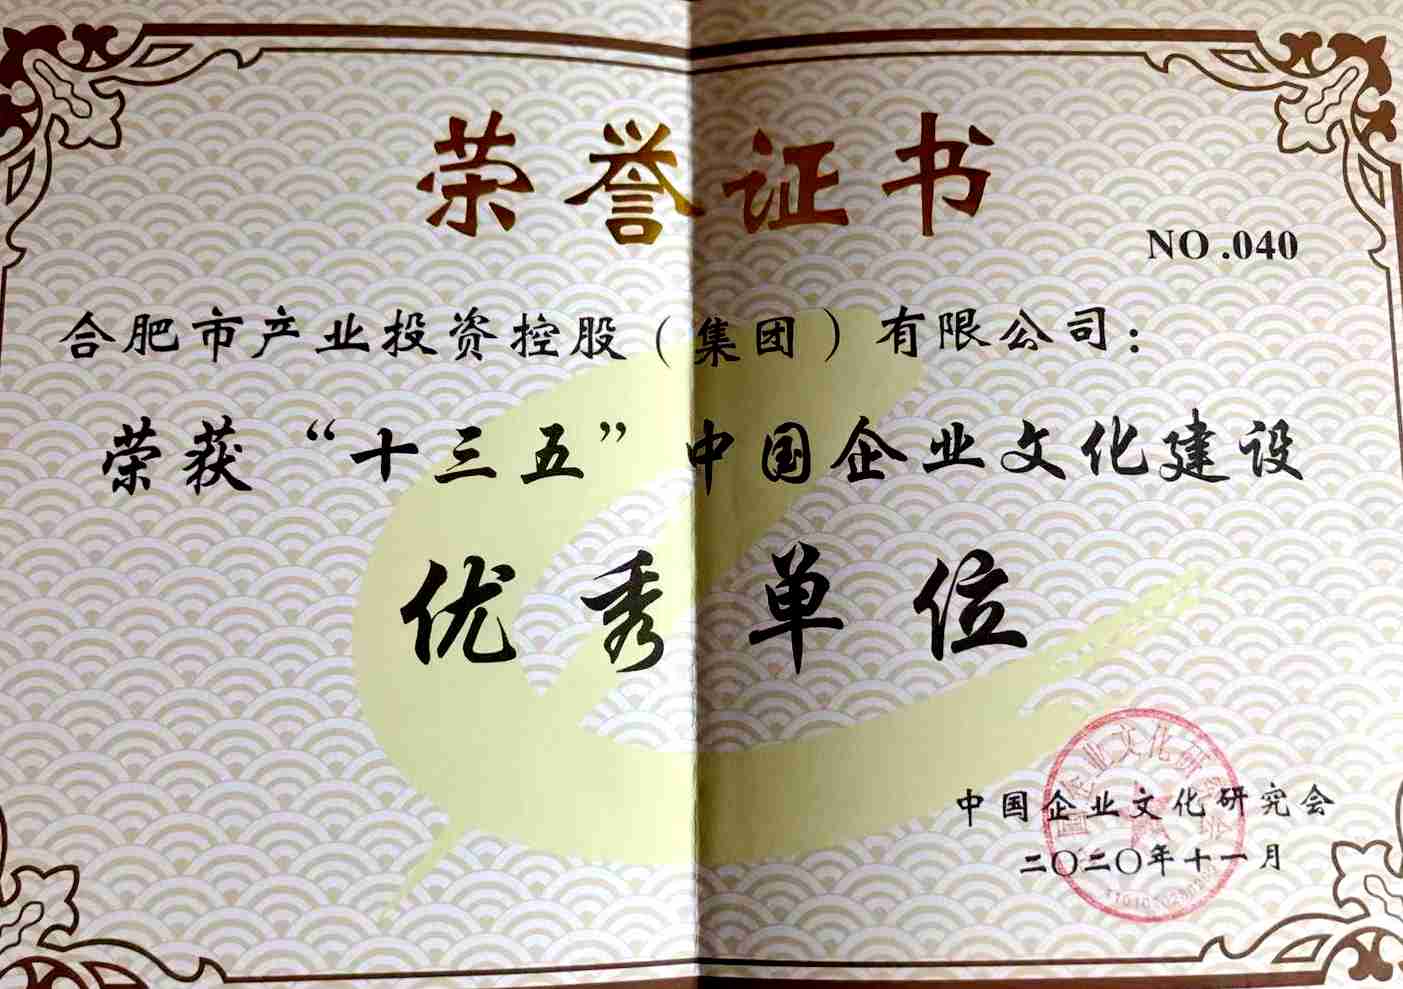 荣誉证书
NO.040
合肥市产业投资控股（集团）有限公司：
荣获“十三五”中国企业文化建设
优秀单位
中国企业文化研究会
二〇二〇年十一月